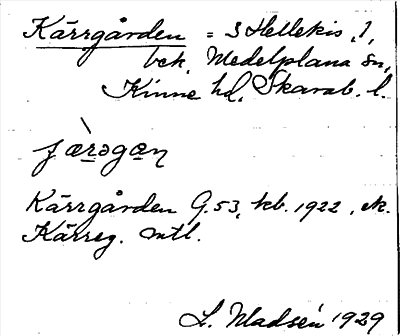 Kärrgården = 3 Hellekis, 1,
bek, Medelplana sn,
Kinne hd, Skarab. l.
Kärrgården G. 53, kb. 1922, ek.
Kärreg. mtl.
L. Madsén 1929